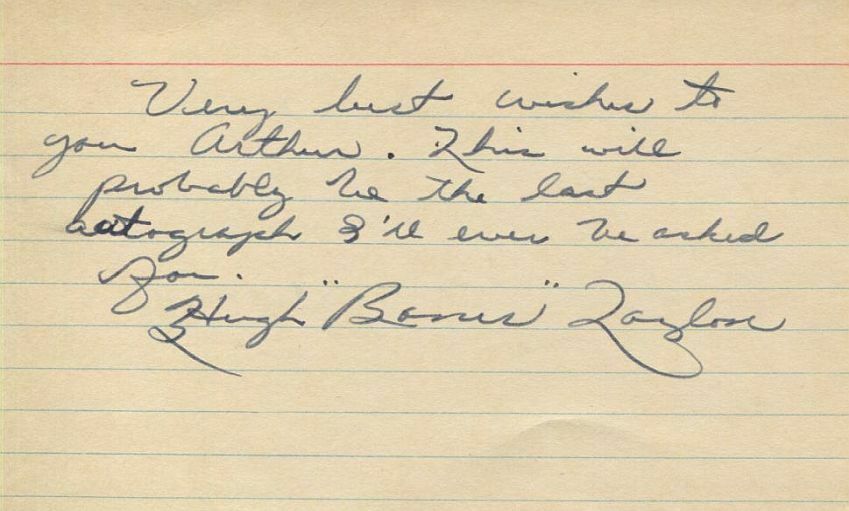 Very best wishes to
you Arthur. This will
probably be the last
autograph I'll ever be asked
for.
Hugh "Bones" Taylor